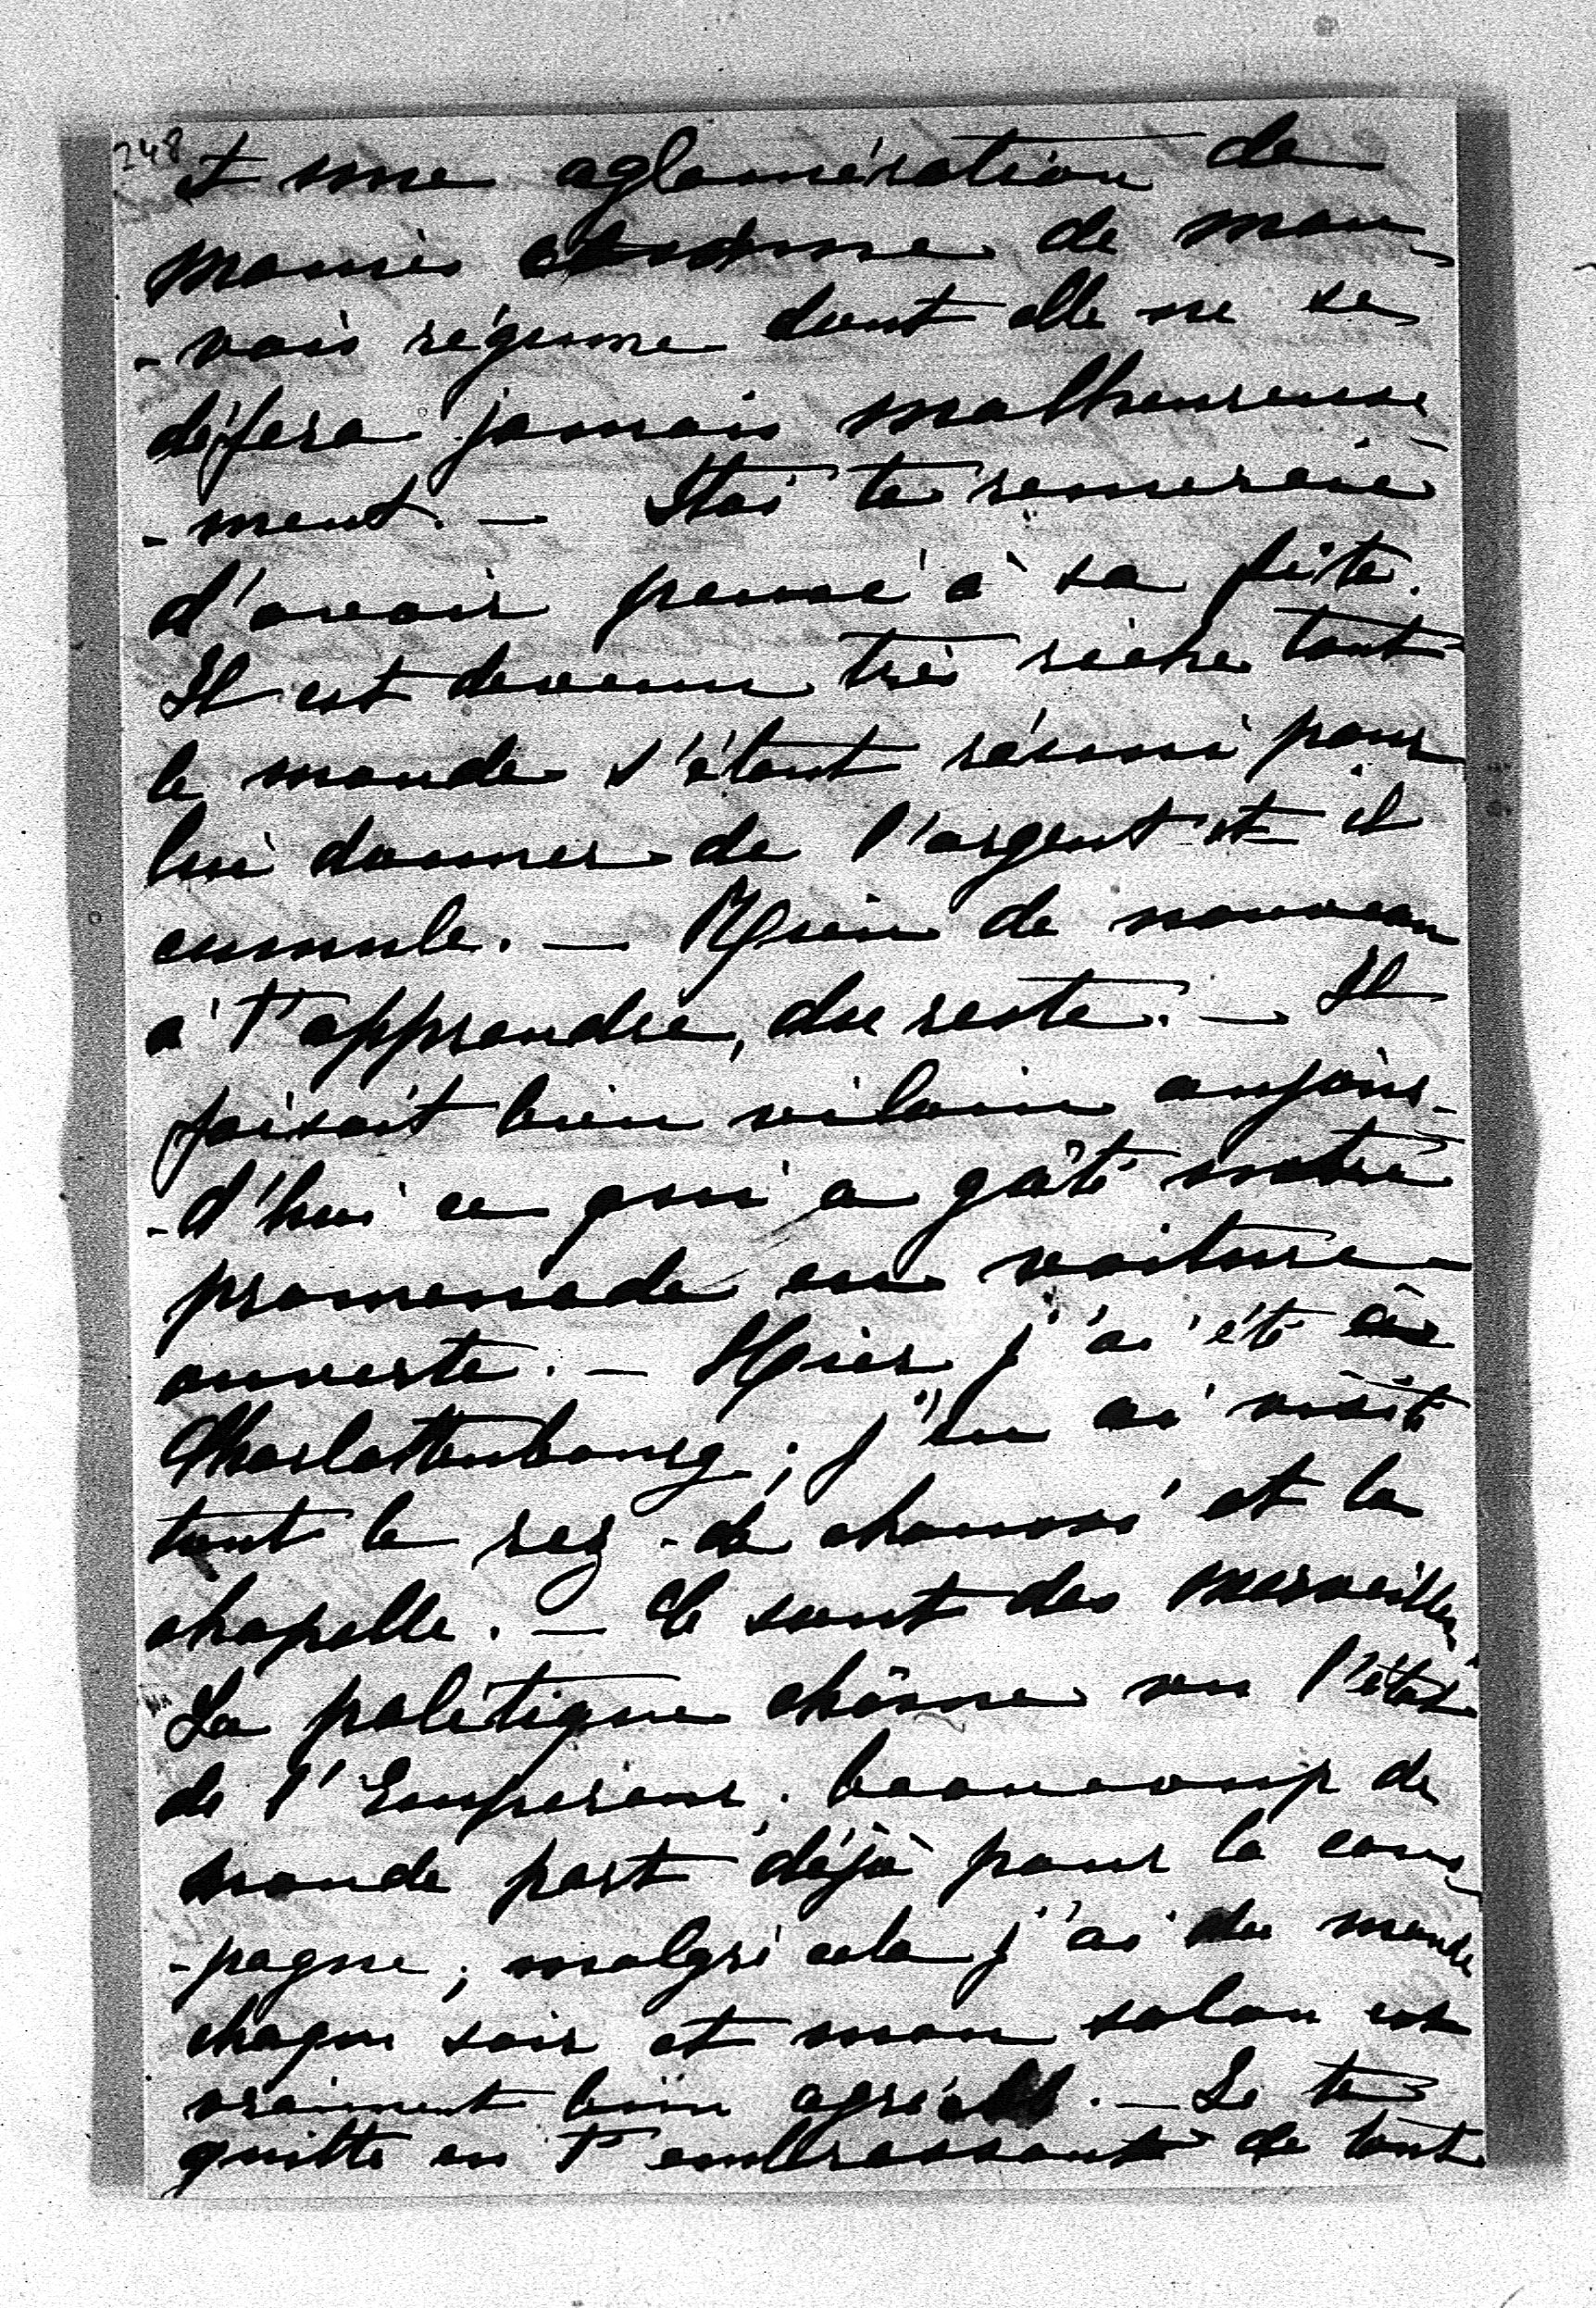 248
et une aglomération de
manies comme de mau-
-vais régime dont elle ne se
défera jamais malheureuse
-ment. — Stas te remercie
d'avoir pensé à sa fête.
Il est devenu très riche tout
le monde s'étant réuni pour
lui donner de l'argent et il
cumule. — Rien de nouveau
à t'apprendre, du reste. — Il
faisait bien vilain aujour-
-d'hui ce qui a gâté notre
promenade en voiture
ouverte. — Hier j'ai été à
Charlottenbourg; j'en ai visité
tout le rez-de chaussé et la
chapelle. — Ce sont des merveilles.
La politique chôme vu l'état
de l'Empereur. beaucoup de
monde part déjà pour la cam-
-pagne; malgré cela j'ai du monde
chaque soir et mon salon est
vraiment bien agréable. — Je te
quitte en t'embrassant de tout